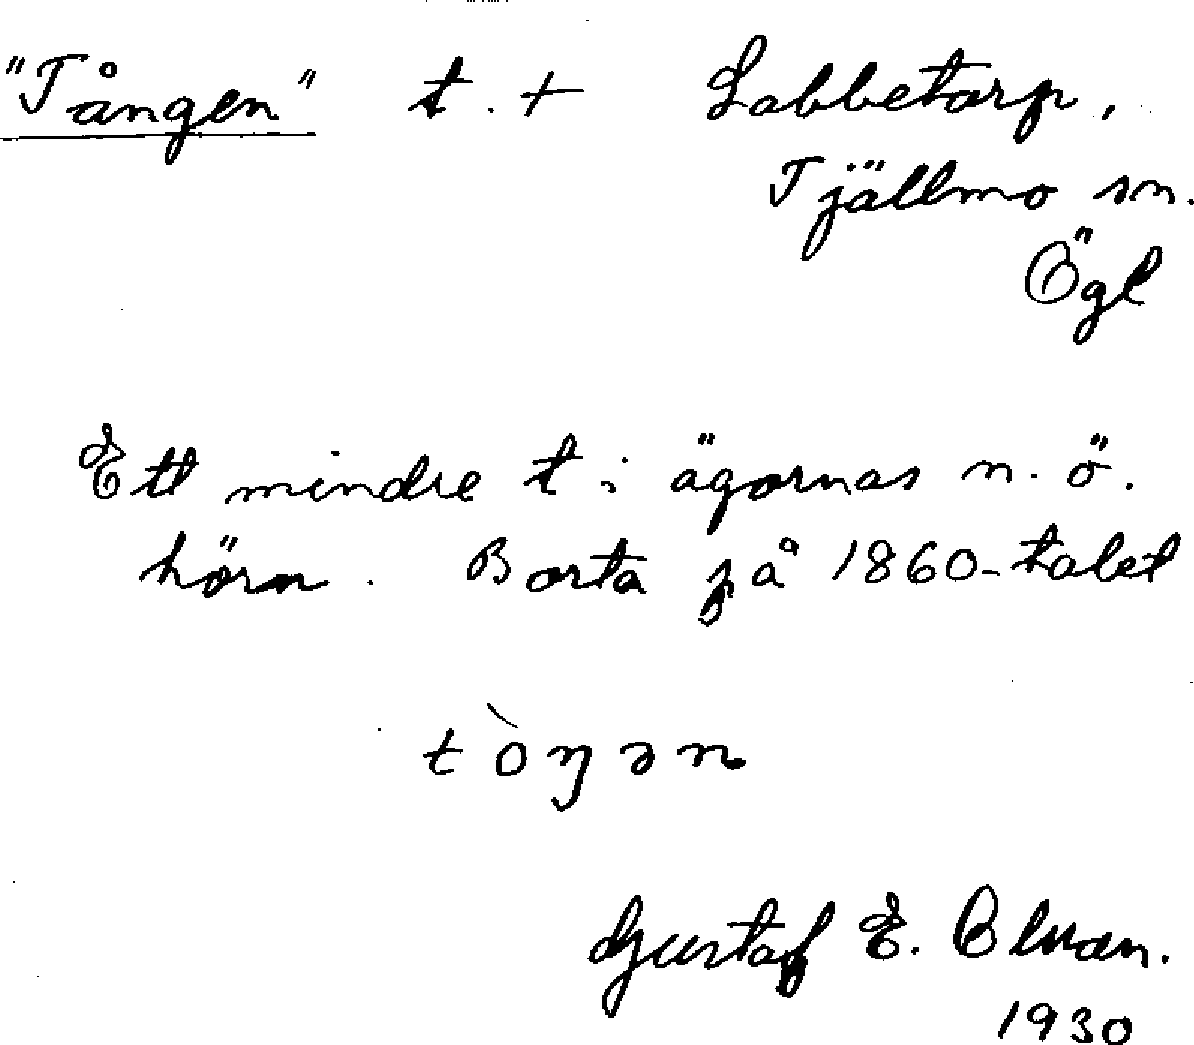 "Tången" t. + Labbetorp,
Tjällmo sn.
Ögl
Ett mindre t i ägornas n. ö.
hörn. Borta på 1860-talet
tòŋən
Gustaf E.
1930